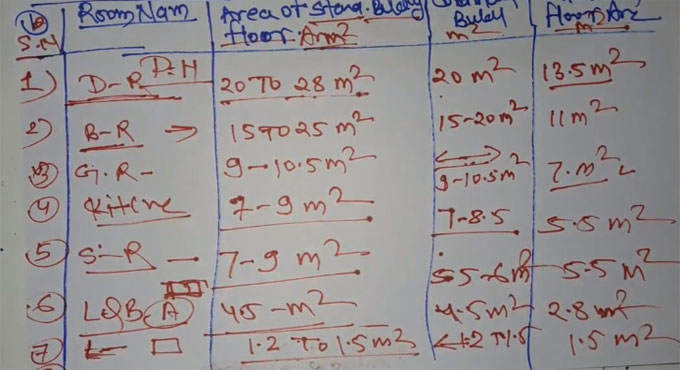 Room Nam Area of Stand. Bulding
S.N Floor Arm² Buldl m² Floor Are m²
1) D-R D-H 20 To 28 m² 20 m² 13.5 m²
2) B-R → 15 To 25 m² 15-20 m² 11 m²
3) G.R- 9-10.5 m² 9-10.5 m² 7. m²
4) Kitcne 7-9 m² 7-8.5 5.5 m²
5) S-R - 7-9 m² 5.5-6 m² 5.5 m²
6 L&B (A) 45-m² 4.5 m² 2.8 m²
7) L- 1.2 To 1.5 m² 1.2 To 1.5 1.5 m²